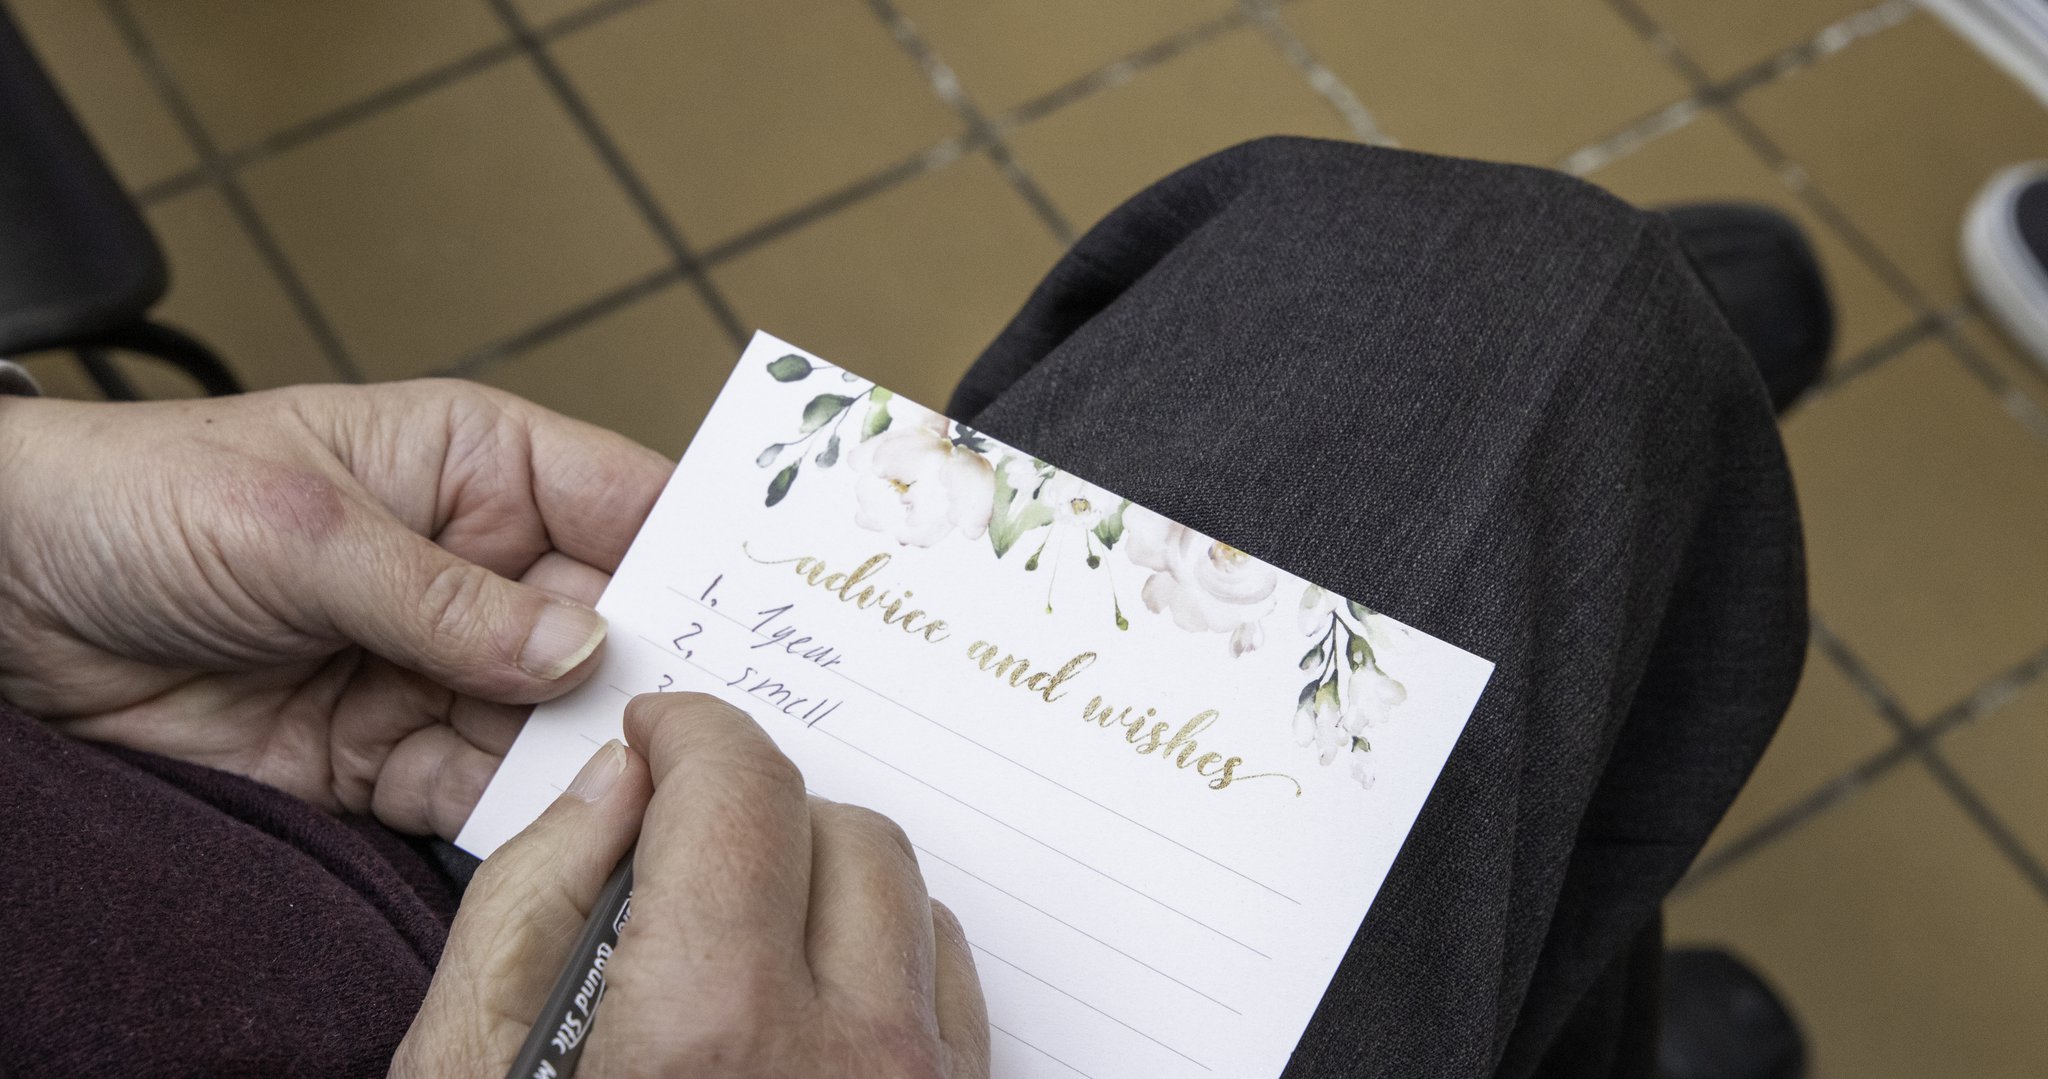 advice and wishes
1. 1 year
2. smell
3.
Round Stic M